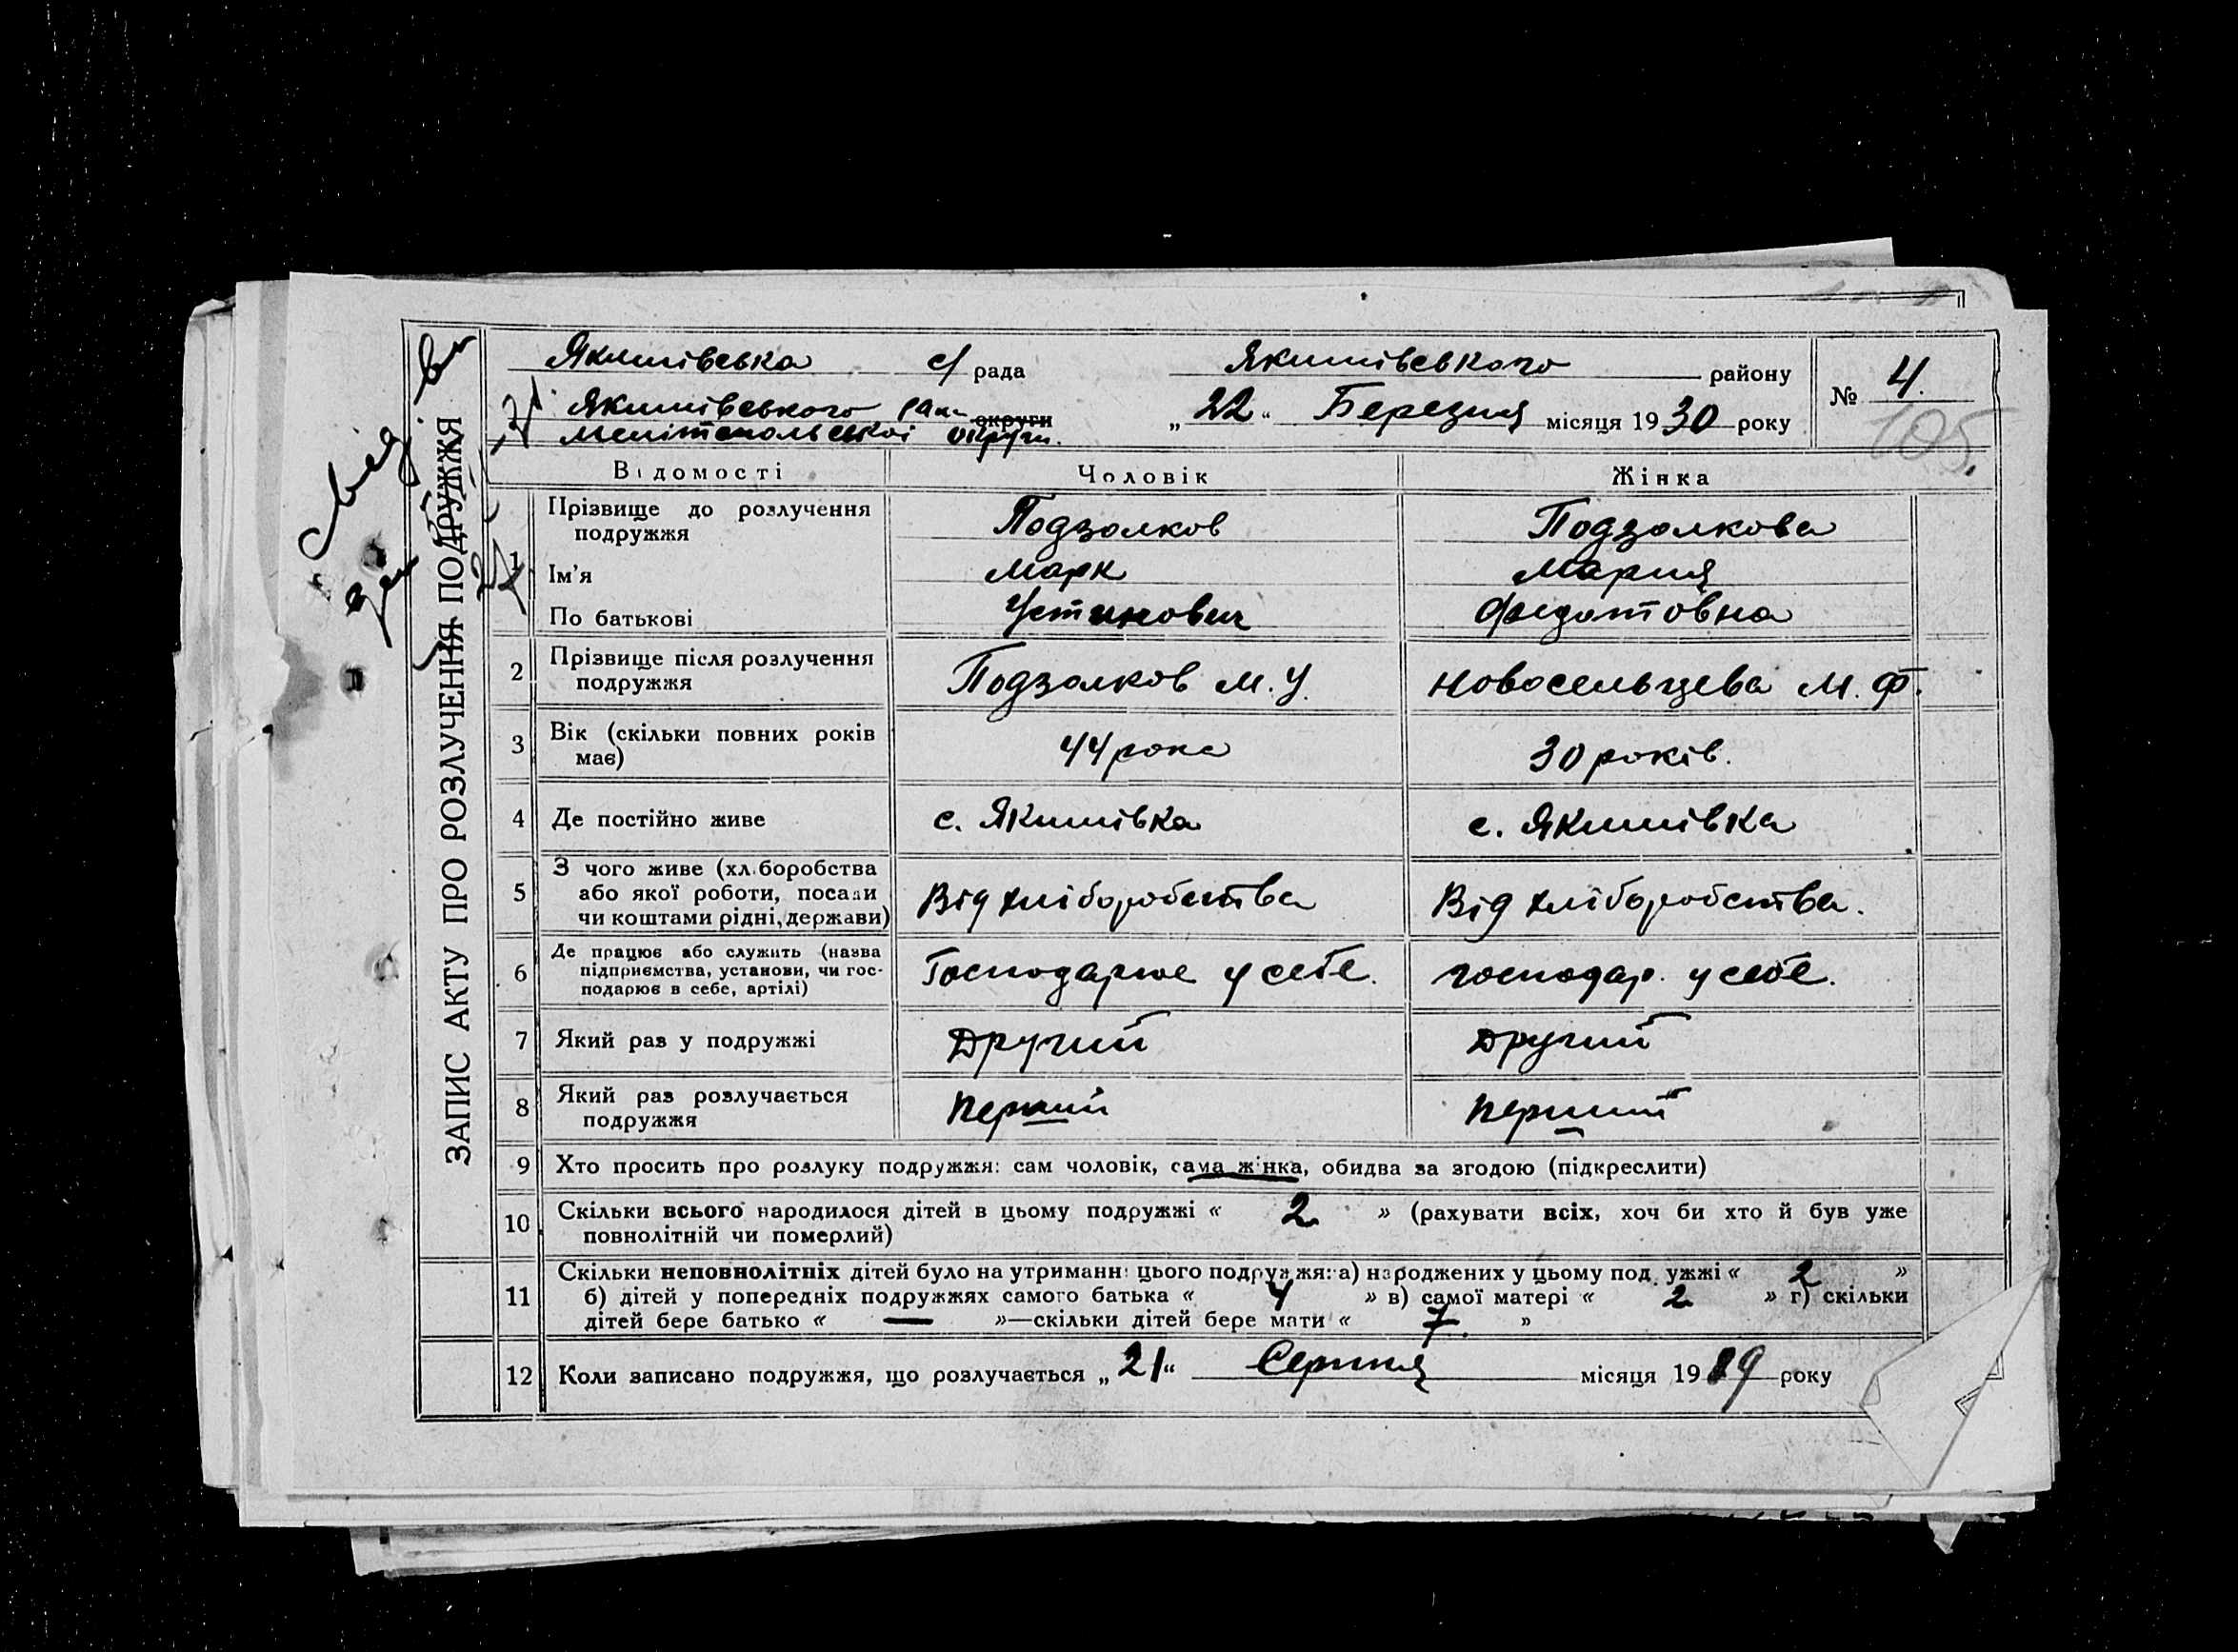 ЗАПИС АКТУ ПРО РОЗЛУЧЕННЯ ПОДРУЖЖЯ
Якимівська с/ рада Якимівського району № 4.
Якимівського округи „22“ Березня місяця 1930 року
Мелітопольської округи. 105.
Відомості Чоловік Жінка
1 Прізвище до розлучення подружжя Подзолков Подзолкова
Ім'я Марк Мария
По батькові Устинович Федотовна
2 Прізвище після розлучення подружжя Подзолков М. У. Новосельцева М. Ф.
3 Вік (скільки повних років має) 44 роки 30 років.
4 Де постійно живе с. Якимівка с. Якимівка
5 З чого живе (хліборобства або якої роботи, посади чи коштами рідні, держави) Від хліборобства Від хліборобства.
6 Де працює або служить (назва підприємства, установи, чи господарює в себе, артілі) Господарює у себе. господар. у себе.
7 Який раз у подружжі Другий Другий
8 Який раз розлучається подружжя Перший Перший
9 Хто просить про розлуку подружжя: сам чоловік, сама жінка, обидва за згодою (підкреслити)
10 Скільки всього народилося дітей в цьому подружжі « 2 » (рахувати всіх, хоч би хто й був уже
повнолітній чи померлий)
11 Скільки неповнолітніх дітей було на утриманні цього подружжя: а) народжених у цьому подружжі « 2 »
б) дітей у попередніх подружжях самого батька « 4 » в) самої матері « 2 » г) скільки
дітей бере батько « — »—скільки дітей бере мати « 7. »
12 Коли записано подружжя, що розлучається „21“ Серпня місяця 1989 року